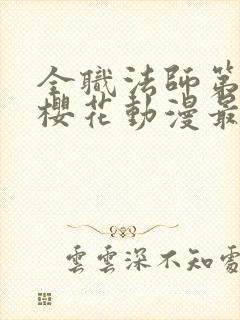 全職法師第
櫻花動漫最
雲雲深不知處